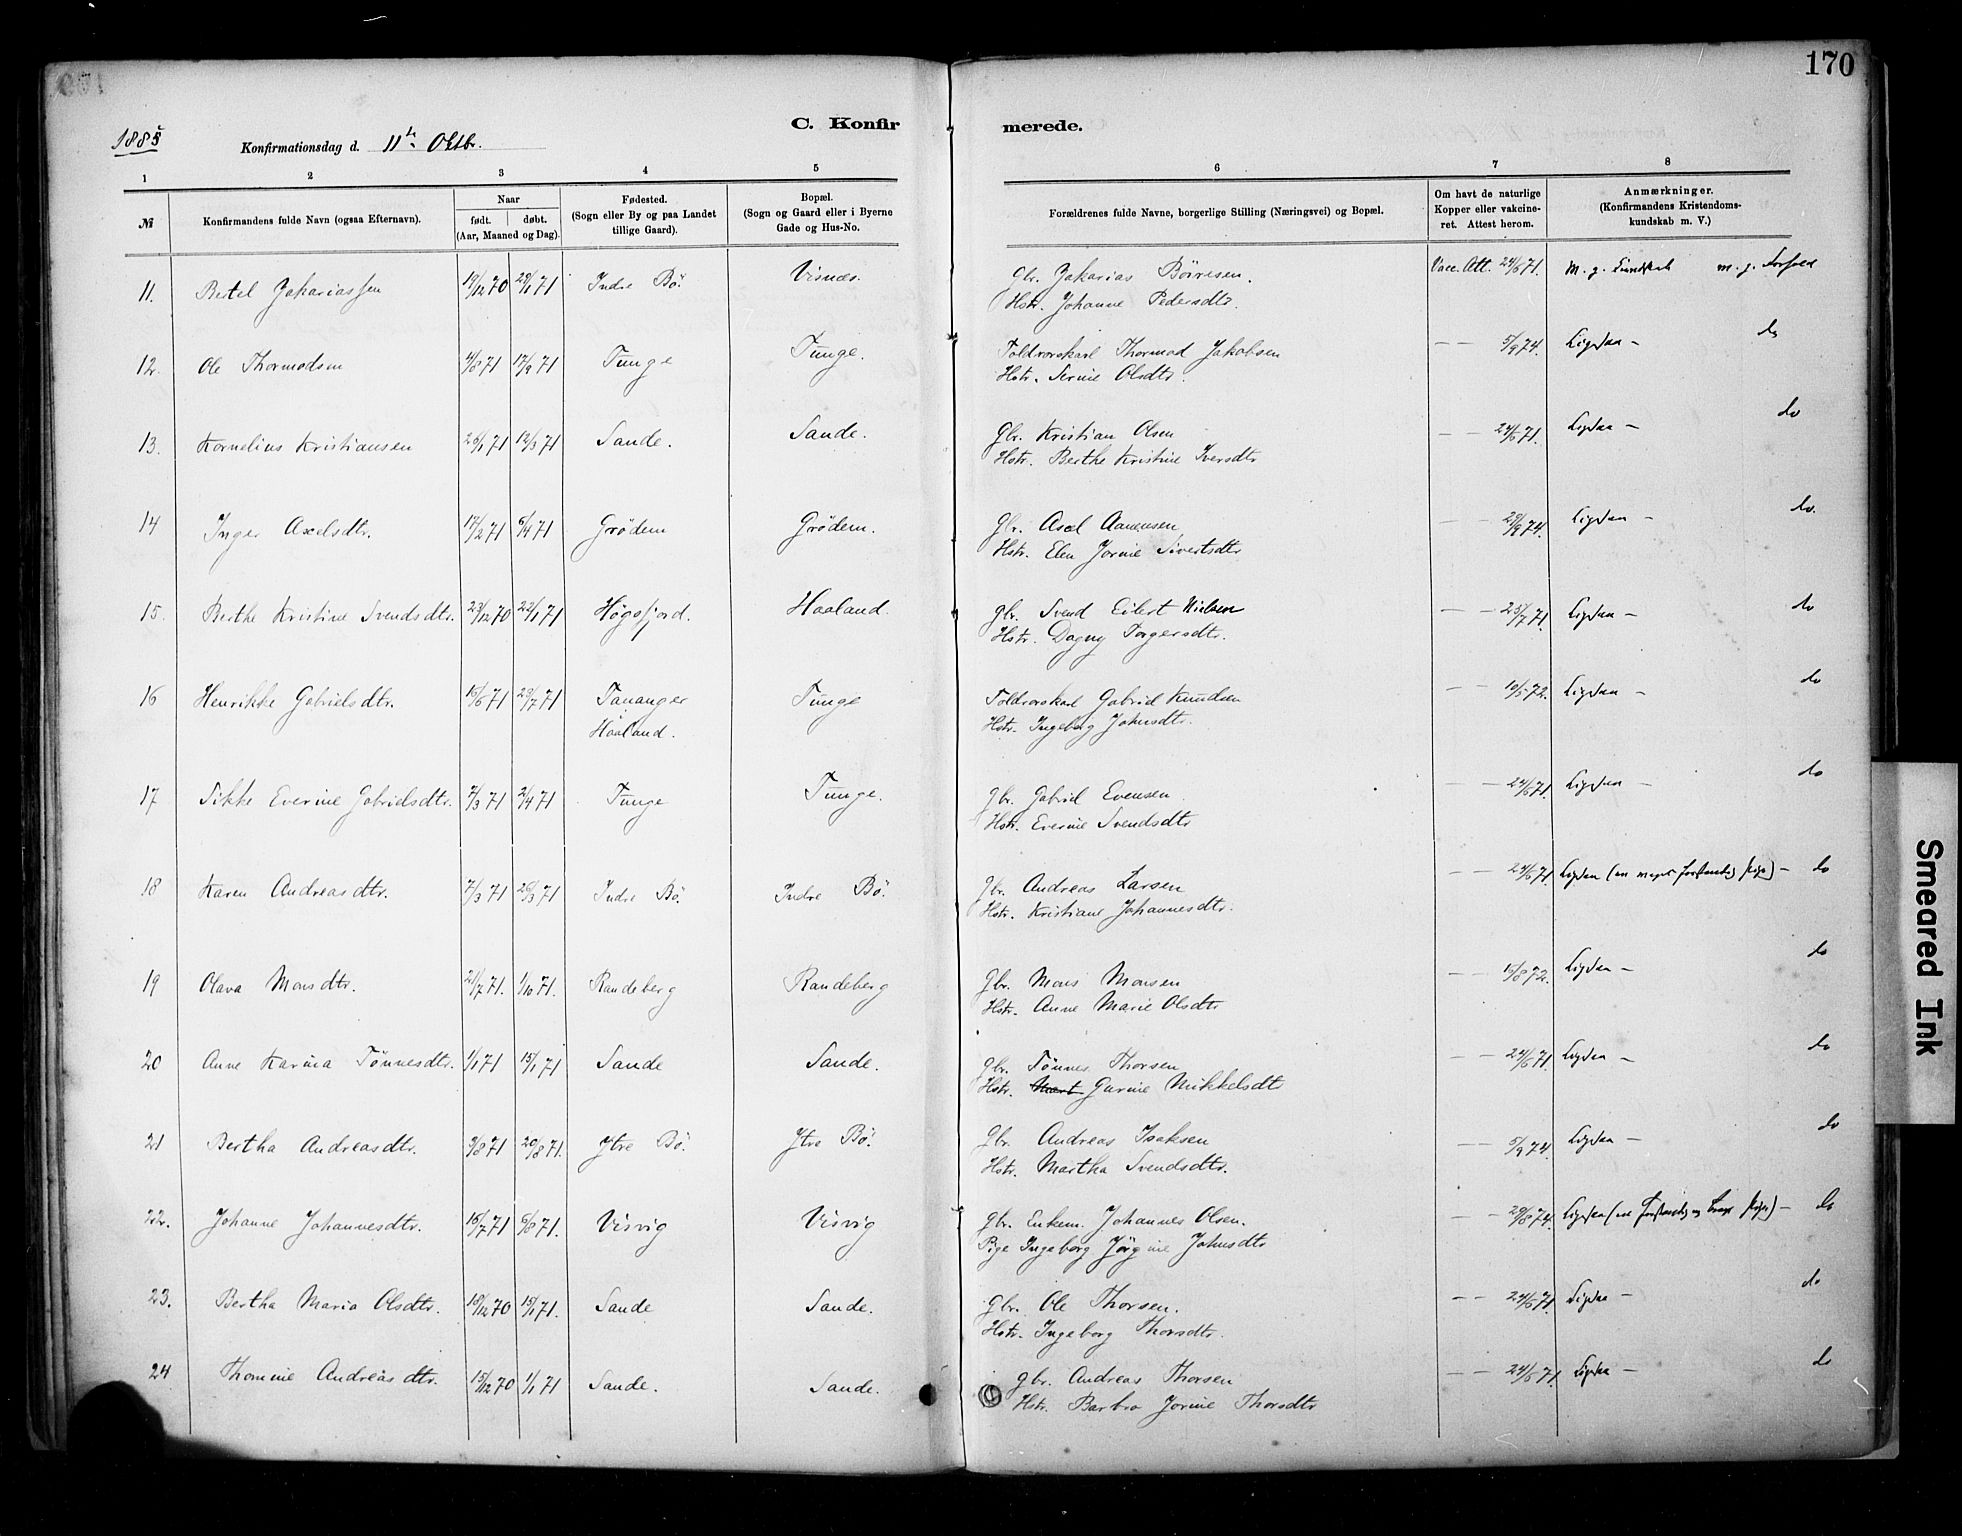 170
C. Konfirmerede.
1885 Konfirmationsdag d. 11te Oktbr.
1 2 3 4 5 6 7 8
№ Konfirmandens fulde Navn (ogsaa Efternavn). Naar født. døbt. (Aar, Maaned og Dag). Fødested. (Sogn eller By og paa Landet tillige Gaard). Bopæl. (Sogn og Gaard eller i Byerne Gade og Hus-No. Forældrenes fulde Navne, borgerlige Stilling (Næringsvei) og Bopæl. Om havt de naturlige Kopper eller vakcineret. Attest herom. Anmærkninger. (Konfirmandens Kristendomskundskab m. V.)
11. Bertel Zakariassen 19/12 70 29/1 71 Indre Bö. Visnes. Gbr. Zakarias Börresen. Vacc. Att. 24/6 71. M. g. Kundskab m. g. Forhold
Hstr. Johanne Pedersdtr.
12. Ole Thormodsen 4/8 71 17/9 71 Tunge Tunge. Toldrorskarl Thormod Jakobsen — — 5/9 74. Ligesaa — do
Hstr. Serine Olsdtr.
13. Kornelius Kristiansen 26/1 71 12/3 71 Sande. Sande. Gbr. Kristian Olsen — — 24/6 71. Ligesaa — do
Hstr. Berthe Kristine Iversdtr
14 Inger Axelsdtr. 17/2 71 6/4 71 Grödem Grödem. Gbr. Axel Aanensen — — 29/9 74. Ligesaa — do.
Hstr. Elen Jorine Sivertsdtr
15. Berthe Kristine Svendsdtr. 23/12 70 22/1 71 Högsfjord. Haaland Gbr. Svend Eilert Nielsen — — 25/7 71. Ligesaa — do
Hstr. Dagny Torgersdtr.
16 Henrikke Gabrielsdtr. 16/6 71 29/7 71 Tananger Tunge Toldrorskarl Gabriel Knudsen — — 10/5 72. Ligesaa — do
Haaland. Hstr. Ingeborg Johnsdtr.
17 Sikke Everine Gabrielsdtr. 7/3 71 2/4 71 Tunge Tunge. Gbr. Gabriel Evensen — — 24/6 71. Ligesaa — do
Hstr. Everine Svendsdtr
18 Karen Andreasdtr. 7/3 71 26/3 71 Indre Bö. Indre Bö. Gbr. Andreas Larsen — — 24/6 71. Ligesaa (en meget forstandig Pige) — do
Hstr. Kristiane Johannesdtr.
19 Olava Monsdtr. 21/7 71. 1/10 71. Randeberg Randeberg Gbr. Mons Monsen — — 16/8 72. Ligesaa — do
Hstr. Anne Marie Olsdtr
20 Anne Karina Tönnesdtr. 1/1 71 15/1 71 Sande Sande. Gbr. Tönnes Thorsen — — 24/6 71. Ligesaa — do
Hstr. Gurine Mikkelsdtr
21 Bertha Andreasdtr. 9/8 71 20/8 71. Ytre Bö. Ytre Bö. Gbr. Andreas Isaksen — — 5/9 74. Ligesaa — do
Hstr. Martha Svendsdtr.
22. Johanne Johannesdtr. 16/7 71 6/8 71. Visvig Visvig Gbr. Enkem. Johannes Olsen. — — 29/8 74. Ligesaa (en forstandig og brav Pige) — do
Pige Ingeborg Jörgine Johnsdtr
23. Bertha Maria Olsdtr. 18/12 70 15/1 71. Sande Sande. Gbr. Ole Thorsen. — — 24/6 71. Ligesaa — do
Hstr. Ingeborg Thorsdtr.
24 Thomine Andreasdtr. 15/12 70 1/1 71 Sande. Sande. Gbr. Andreas Thorsen — — 24/6 71. Ligesaa — do
Hstr. Barbro Jorine Thorsdtr
Smeared Ink